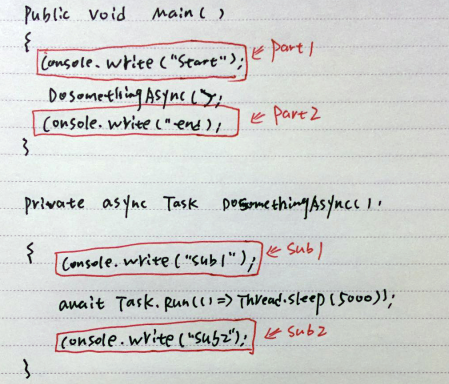 Public void Main()
{
Console.write("Start"); ← Part1
DoSomethingAsync();
Console.write("end); ← Part2
}
Private async Task DoSomethingAsync();
{
Console.write("Sub1"); ← Sub1
await Task.Run(()=>Thread.Sleep(5000));
Console.write("Sub2"); ← Sub2
}